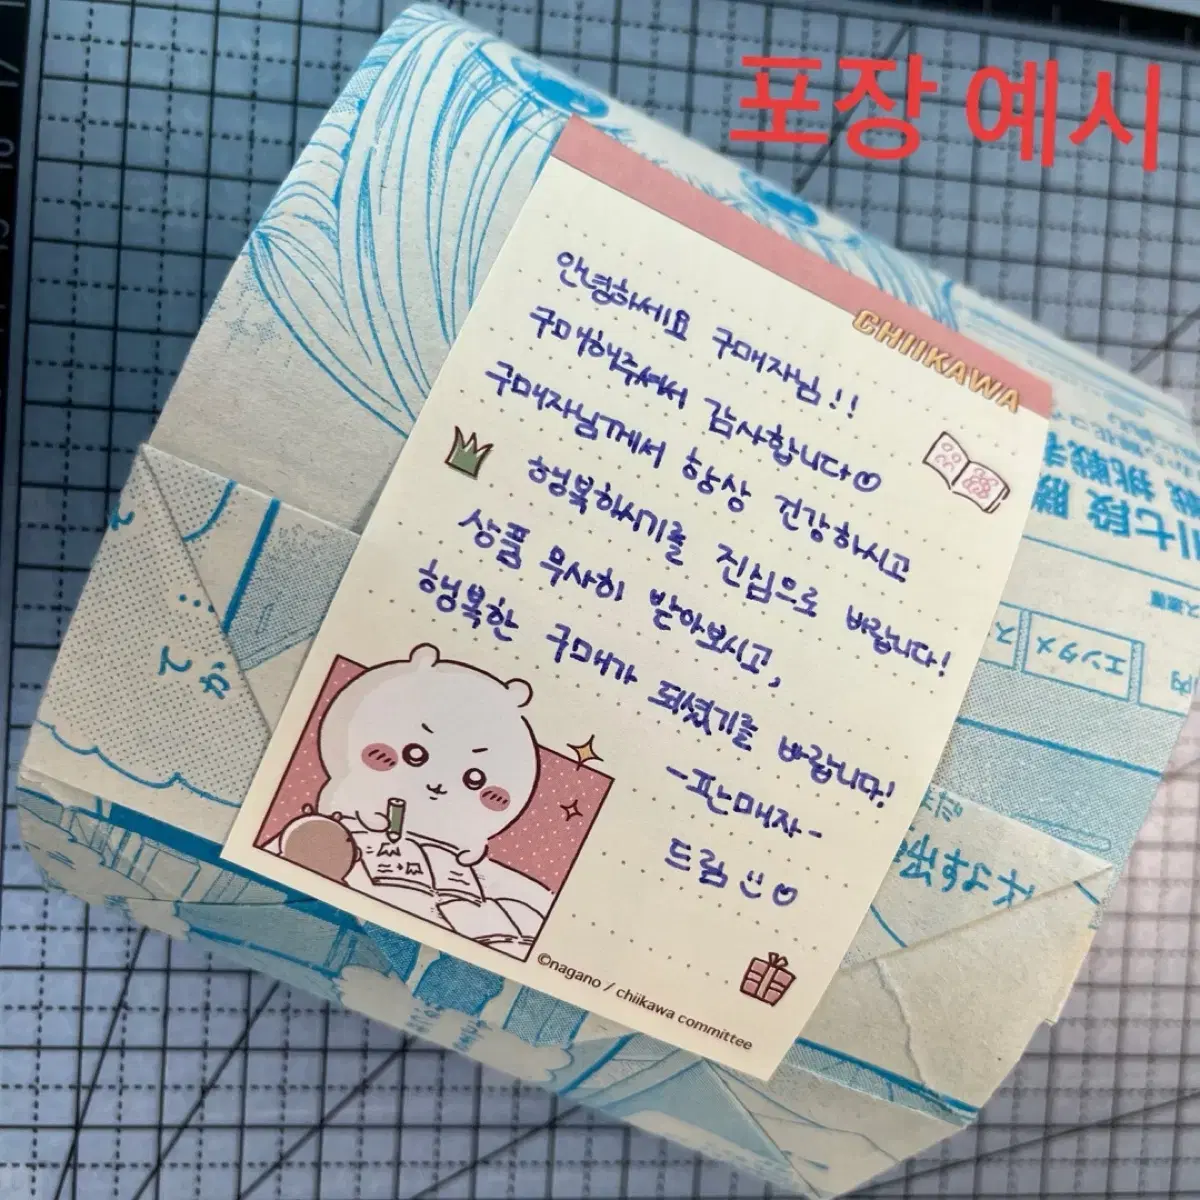 포장 예시
CHIIKAWA
안녕하세요 구매자님!!
구매해주셔서 감사합니다♡
구매자님께서 항상 건강하시고
행복하시기를 진심으로 바랍니다!
상품 무사히 받아보시고,
행복한 구매가 되셨기를 바랍니다!
-판매자-
드림 ♡
©nagano / chiikawa committee
エンタメ